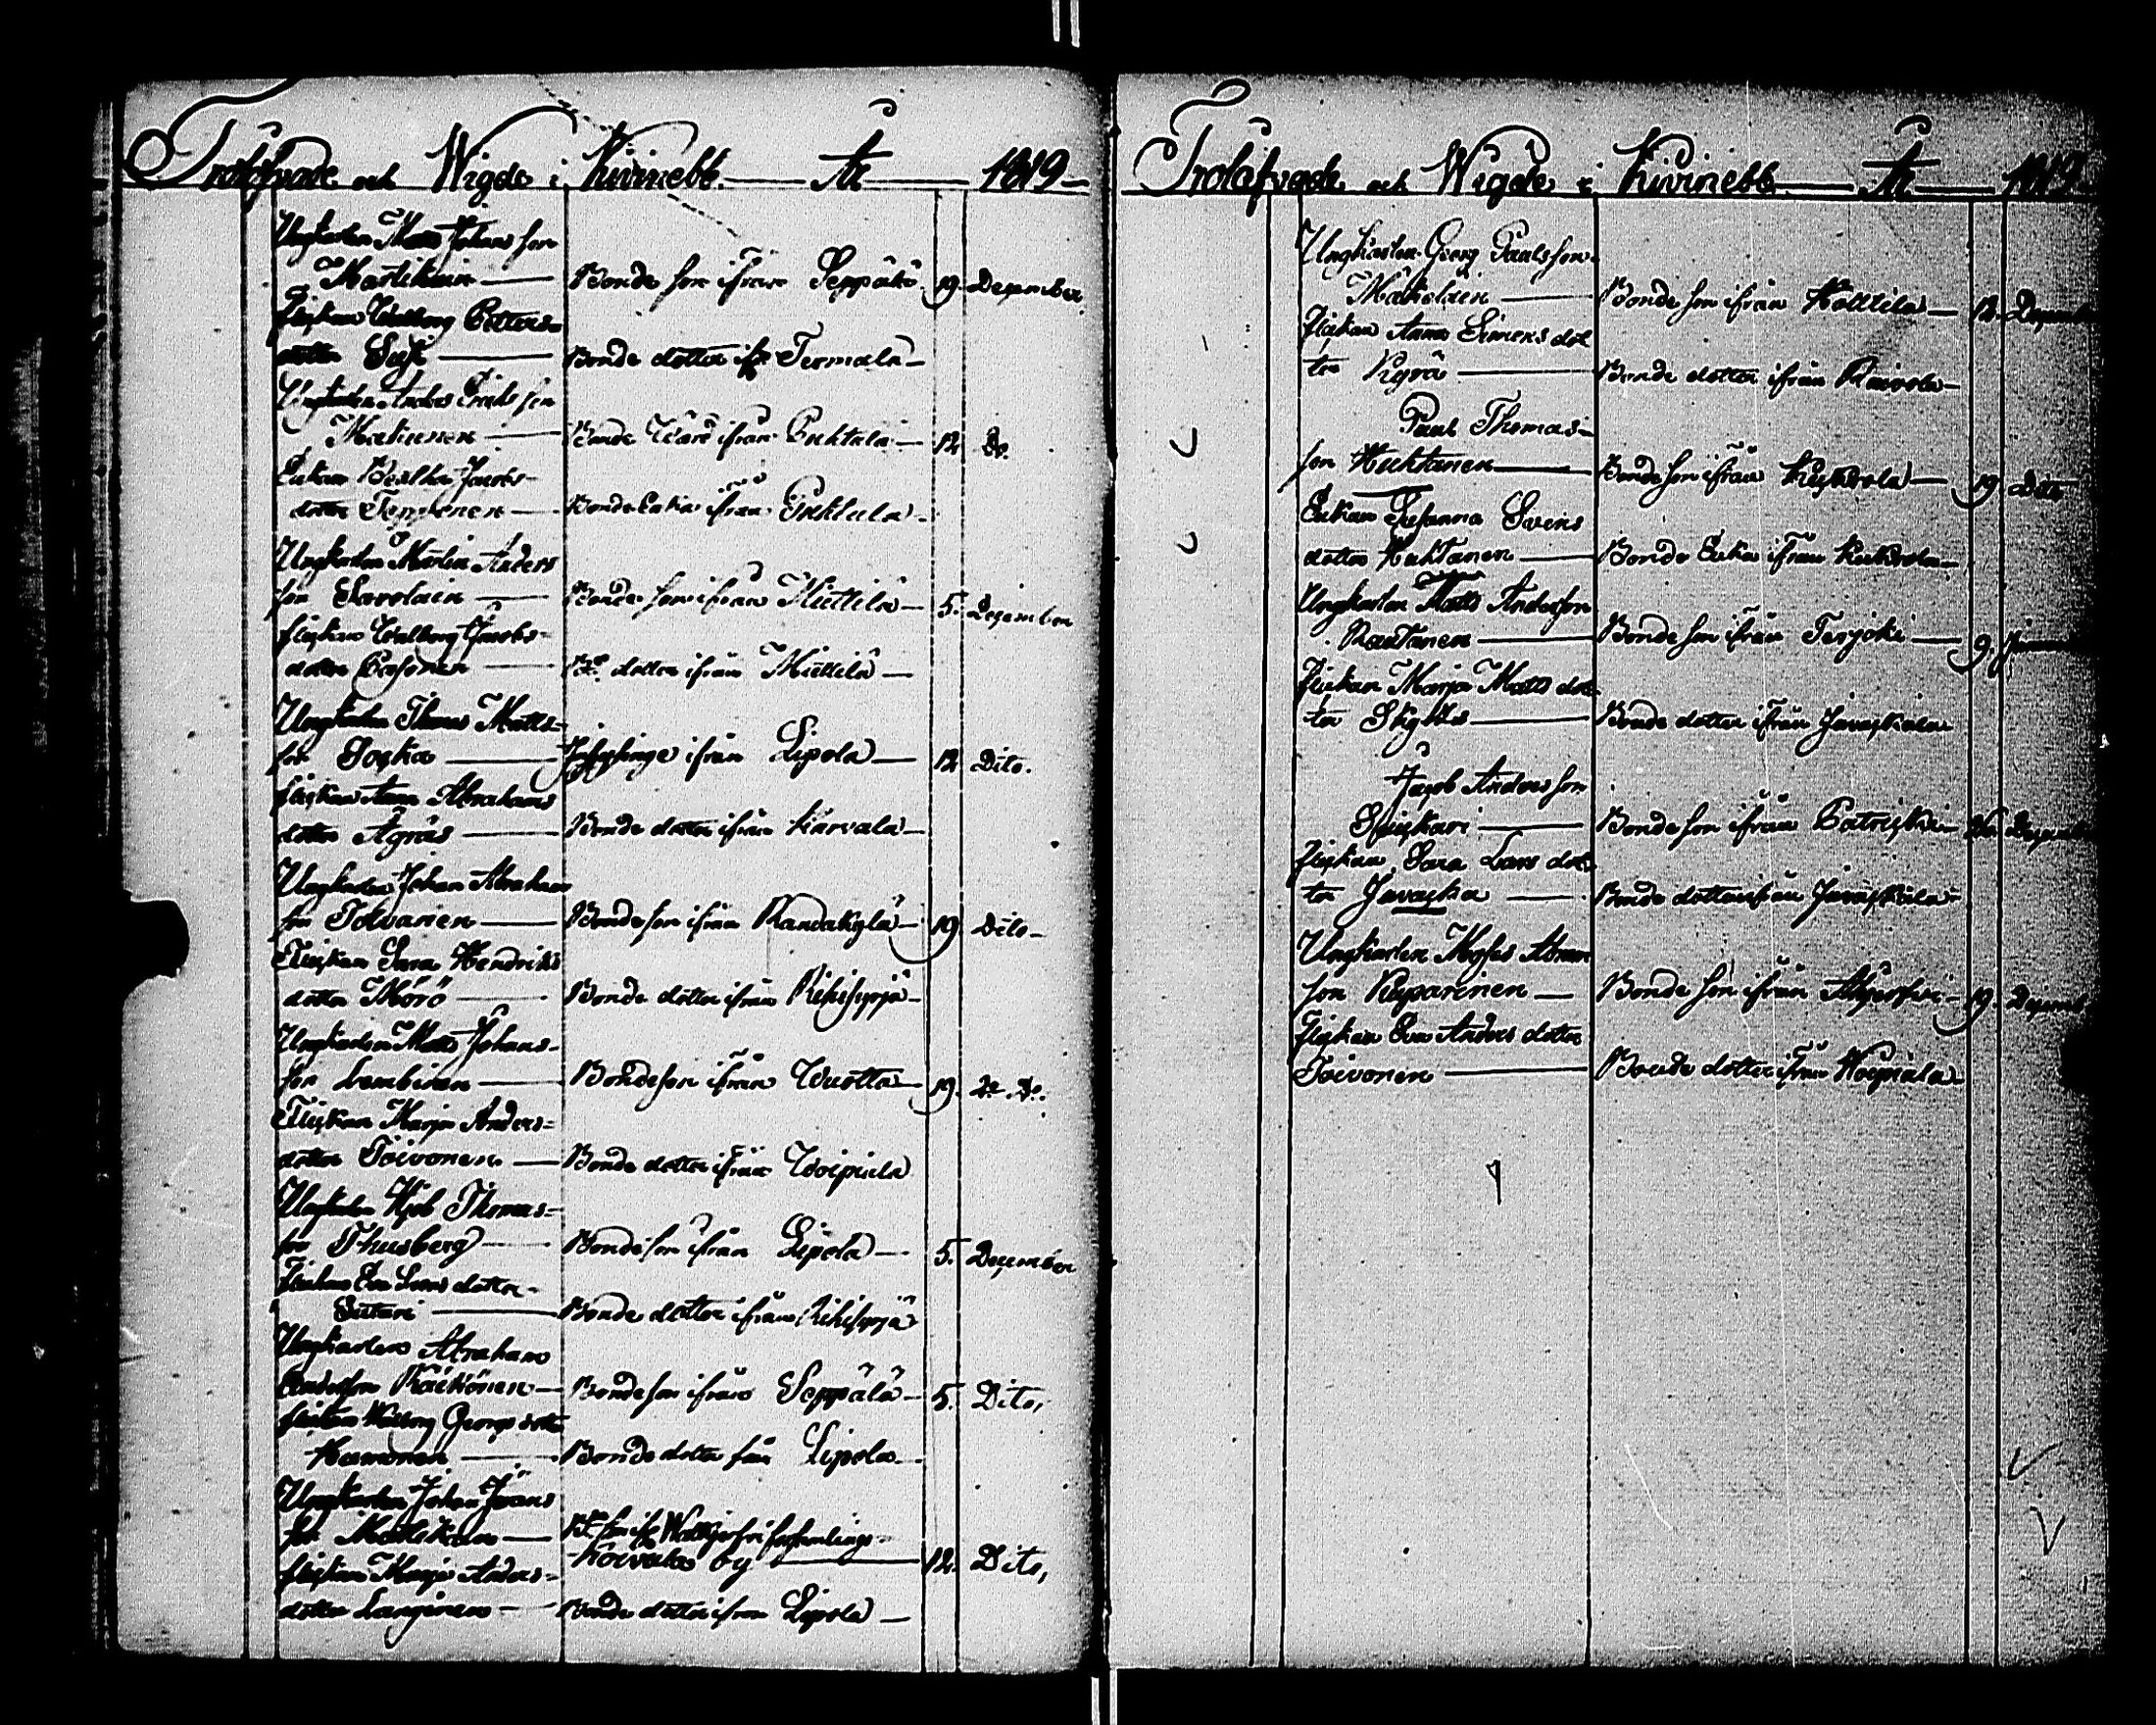 Trolofvade och Wigde i Kivinebb År 1819
Ungkarlen Matts Johans son
Martikain Bonde son ifrån Seppälä 19 Dezember
flickan Walborg Petters
dotter Susi Bonde dotter ifr Termala
Ungkarlen Anders Eriks son
Makinen Bonde ifrån Puhtula 12 Do.
Enkan Beatha Jacobs
dotter Temponen Bonde Enka ifrån Puhtula
Ungkarlen Martin Anders
son Savolain Bonde son ifrån Miettilä 5. Dezember
flickan Walborg Jacobs
dotter Pasonen Be dotter ifrån Miettilä
Ungkarlen Thomas Matts
son Toska Inhysinge ifrån Lipola 12 Dito.
flickan Anna Abrahams
dotter Ägräs Bonde dotter ifrån Karvala
Ungkarlen Johan Abraham
son Tolvanen Bonde son ifrån Randakylä 19. Dito
Flickan Sara Hendriks
dotter Mörö Bonde dotter ifrån Rihisyrjä
Ungkarlen Matts Johans
son Lembinen Bonde son ifrån Wuotta 19. De Do.
Flickan Marja Anders
dotter Toivonen Bonde dotter ifrån Woipiala
Ungkarlen Hjob Thomas
son Thusberg Bonde son ifrån Lipola 5. Dezember
flickan Eva Lars dotter
Sutari Bonde dotter ifrån Rihisyrjä
Ungkarlen Abraham
Andersson Räikönen Bonde son ifrån Seppälä 5. Dito,
flickan Walborg Georgs dotter
Hamonen Bonde dotter från Lipola
Ungkarlen Johan Jörans
son Matikain Be son ifr Walkjerfvi församlings
Koivula by 12. Dito,
flickan Marja Anders
dotter Langinen Bonde dotter ifrån Lipola
Trolofvade och Wigde i Kivinebb År 1819
Ungkarlen Georg Pauls son
Mäkeläin Bonde son ifrån Holttila 12. Dezember
flickan Anna Simons dot
ter Kyrö Bonde dotter ifrån Raivola
Paul Thomas
son Huhtanen Bonde son ifrån Kuskrola 19 Dito
Enkan Susanna Svens
dotter Huhtanen Bonde Enka ifrån Kuhrola
Ungkarlen Matts Andersson
Rautanen Bonde son ifrån Terjoki 9.
flickan Marja Matts dot
ter Skyttes Bonde dotter ifrån Javaskiala
Jacob Anders son
Bonde son ifrån Patriskin 26 Dezember
flickan Sara Lars dot
ter Javaska Bonde dotter ifrån Javaskiala
Ungkarlen Moses Abram
son Kuparinen Bonde son ifrån 19 Dezemb
flickan Eva Anders dotter
Toivonen Bonde dotter ifrån Woipiala